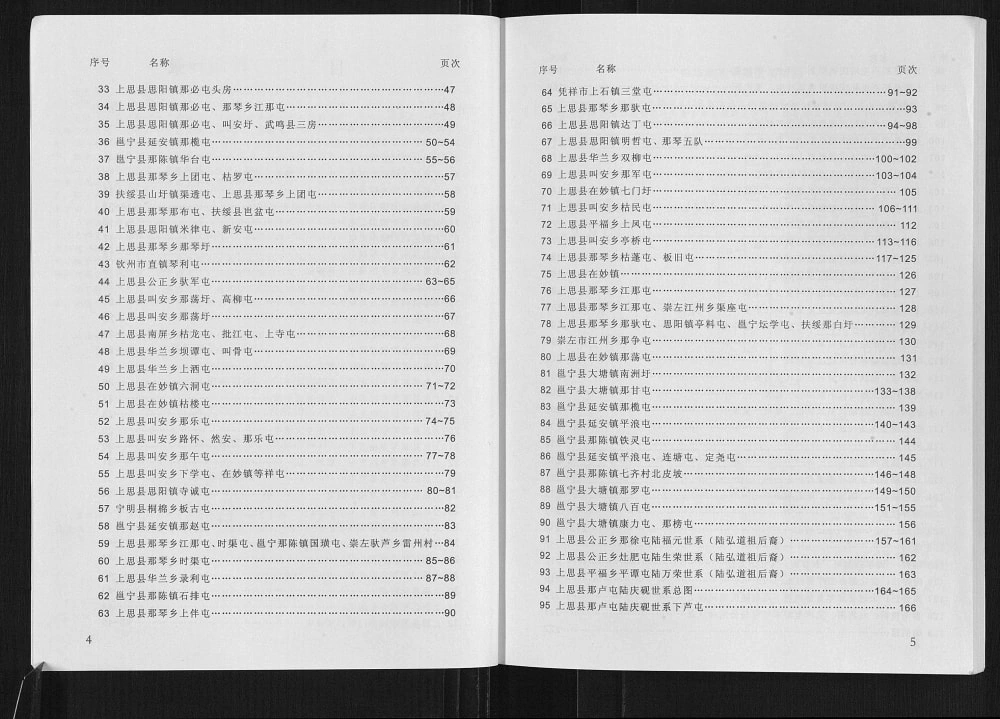 序号 名称 页次
33 上思县思阳镇那必屯头房……47
34 上思县思阳镇那必屯、那琴乡江那屯……48
35 上思县思阳镇那必屯、叫安圩、武鸣县三房……49
36 邕宁县延安镇那榄屯……50~54
37 邕宁县那陈镇华台屯……55~56
38 上思县那琴乡上团屯、枯罗屯……57
39 扶绥县山圩镇渠透屯、上思县那琴乡上团屯……58
40 上思县那琴那布屯、扶绥县岜盆屯……59
41 上思县思阳镇米律屯、新安屯……60
42 上思县那琴乡那琴圩……61
43 钦州市直镇琴利屯……62
44 上思县公正乡驮军屯……63~65
45 上思县叫安乡那荡圩、高柳屯……66
46 上思县叫安乡那荡圩……67
47 上思县南屏乡枯龙屯、批江屯、上寺屯……68
48 上思县华兰乡坝谭屯、叫骨屯……69
49 上思县华兰乡上洒屯……70
50 上思县在妙镇六洞屯……71~72
51 上思县在妙镇枯楼屯……73
52 上思县叫安乡那乐屯……74~75
53 上思县叫安乡路怀、然安、那乐屯……76
54 上思县叫安乡那午屯……77~78
55 上思县叫安乡下学屯、在妙镇等祥屯……79
56 上思县思阳镇寺诚屯……80~81
57 宁明县桐棉乡板古屯……82
58 邕宁县延安镇那赵屯……83
59 上思县那琴乡江那屯、时渠屯、邕宁那陈镇国璜屯、崇左驮芦乡雷州村…84
60 上思县那琴乡时渠屯……85~86
61 上思县华兰乡录利屯……87~88
62 邕宁县那陈镇石排屯……89
63 上思县那琴乡上伴屯……90
4
序号 名称 页次
64 凭祥市上石镇三堂屯……91~92
65 上思县那琴乡那驮屯……93
66 上思县思阳镇达丁屯……94~98
67 上思县思阳镇明哲屯、那琴五队……99
68 上思县华兰乡双柳屯……100~102
69 上思县叫安乡那军屯……103~104
70 上思县在妙镇七门圩……105
71 上思县叫安乡枯民屯……106~111
72 上思县平福乡上凤屯……112
73 上思县叫安乡亭桥屯……113~116
74 上思县那琴乡枯蓬屯、板旧屯……117~125
75 上思县在妙镇……126
76 上思县那琴乡江那屯……127
77 上思县那琴乡江那屯、崇左江州乡渠座屯……128
78 上思县那琴乡那驮屯、思阳镇亭料屯、邕宁坛学屯、扶绥那白圩……129
79 崇左市江州乡那争屯……130
80 上思县在妙镇那荡屯……131
81 邕宁县大塘镇南洲圩……132
82 邕宁县大塘镇那甘屯……133~138
83 邕宁县延安镇那榄屯……139
84 邕宁县延安镇平浪屯……140~143
85 邕宁县那陈镇铁灵屯……144
86 邕宁县延安镇平浪屯、连塘屯、定尧屯……145
87 邕宁县那陈镇七齐村北皮坡……146~148
88 邕宁县大塘镇那罗屯……149~150
89 邕宁县大塘镇八百屯……151~155
90 邕宁县大塘镇康力屯、那榜屯……156
91 上思县公正乡那徐屯陆福元世系（陆弘道祖后裔）……157~161
92 上思县公正乡灶肥屯陆生荣世系（陆弘道祖后裔）……162
93 上思县平福乡平谭屯陆万荣世系（陆弘道祖后裔）……163
94 上思县那卢屯陆庆砚世系总图……164~165
95 上思县那卢屯陆庆砚世系下芦屯……166
5